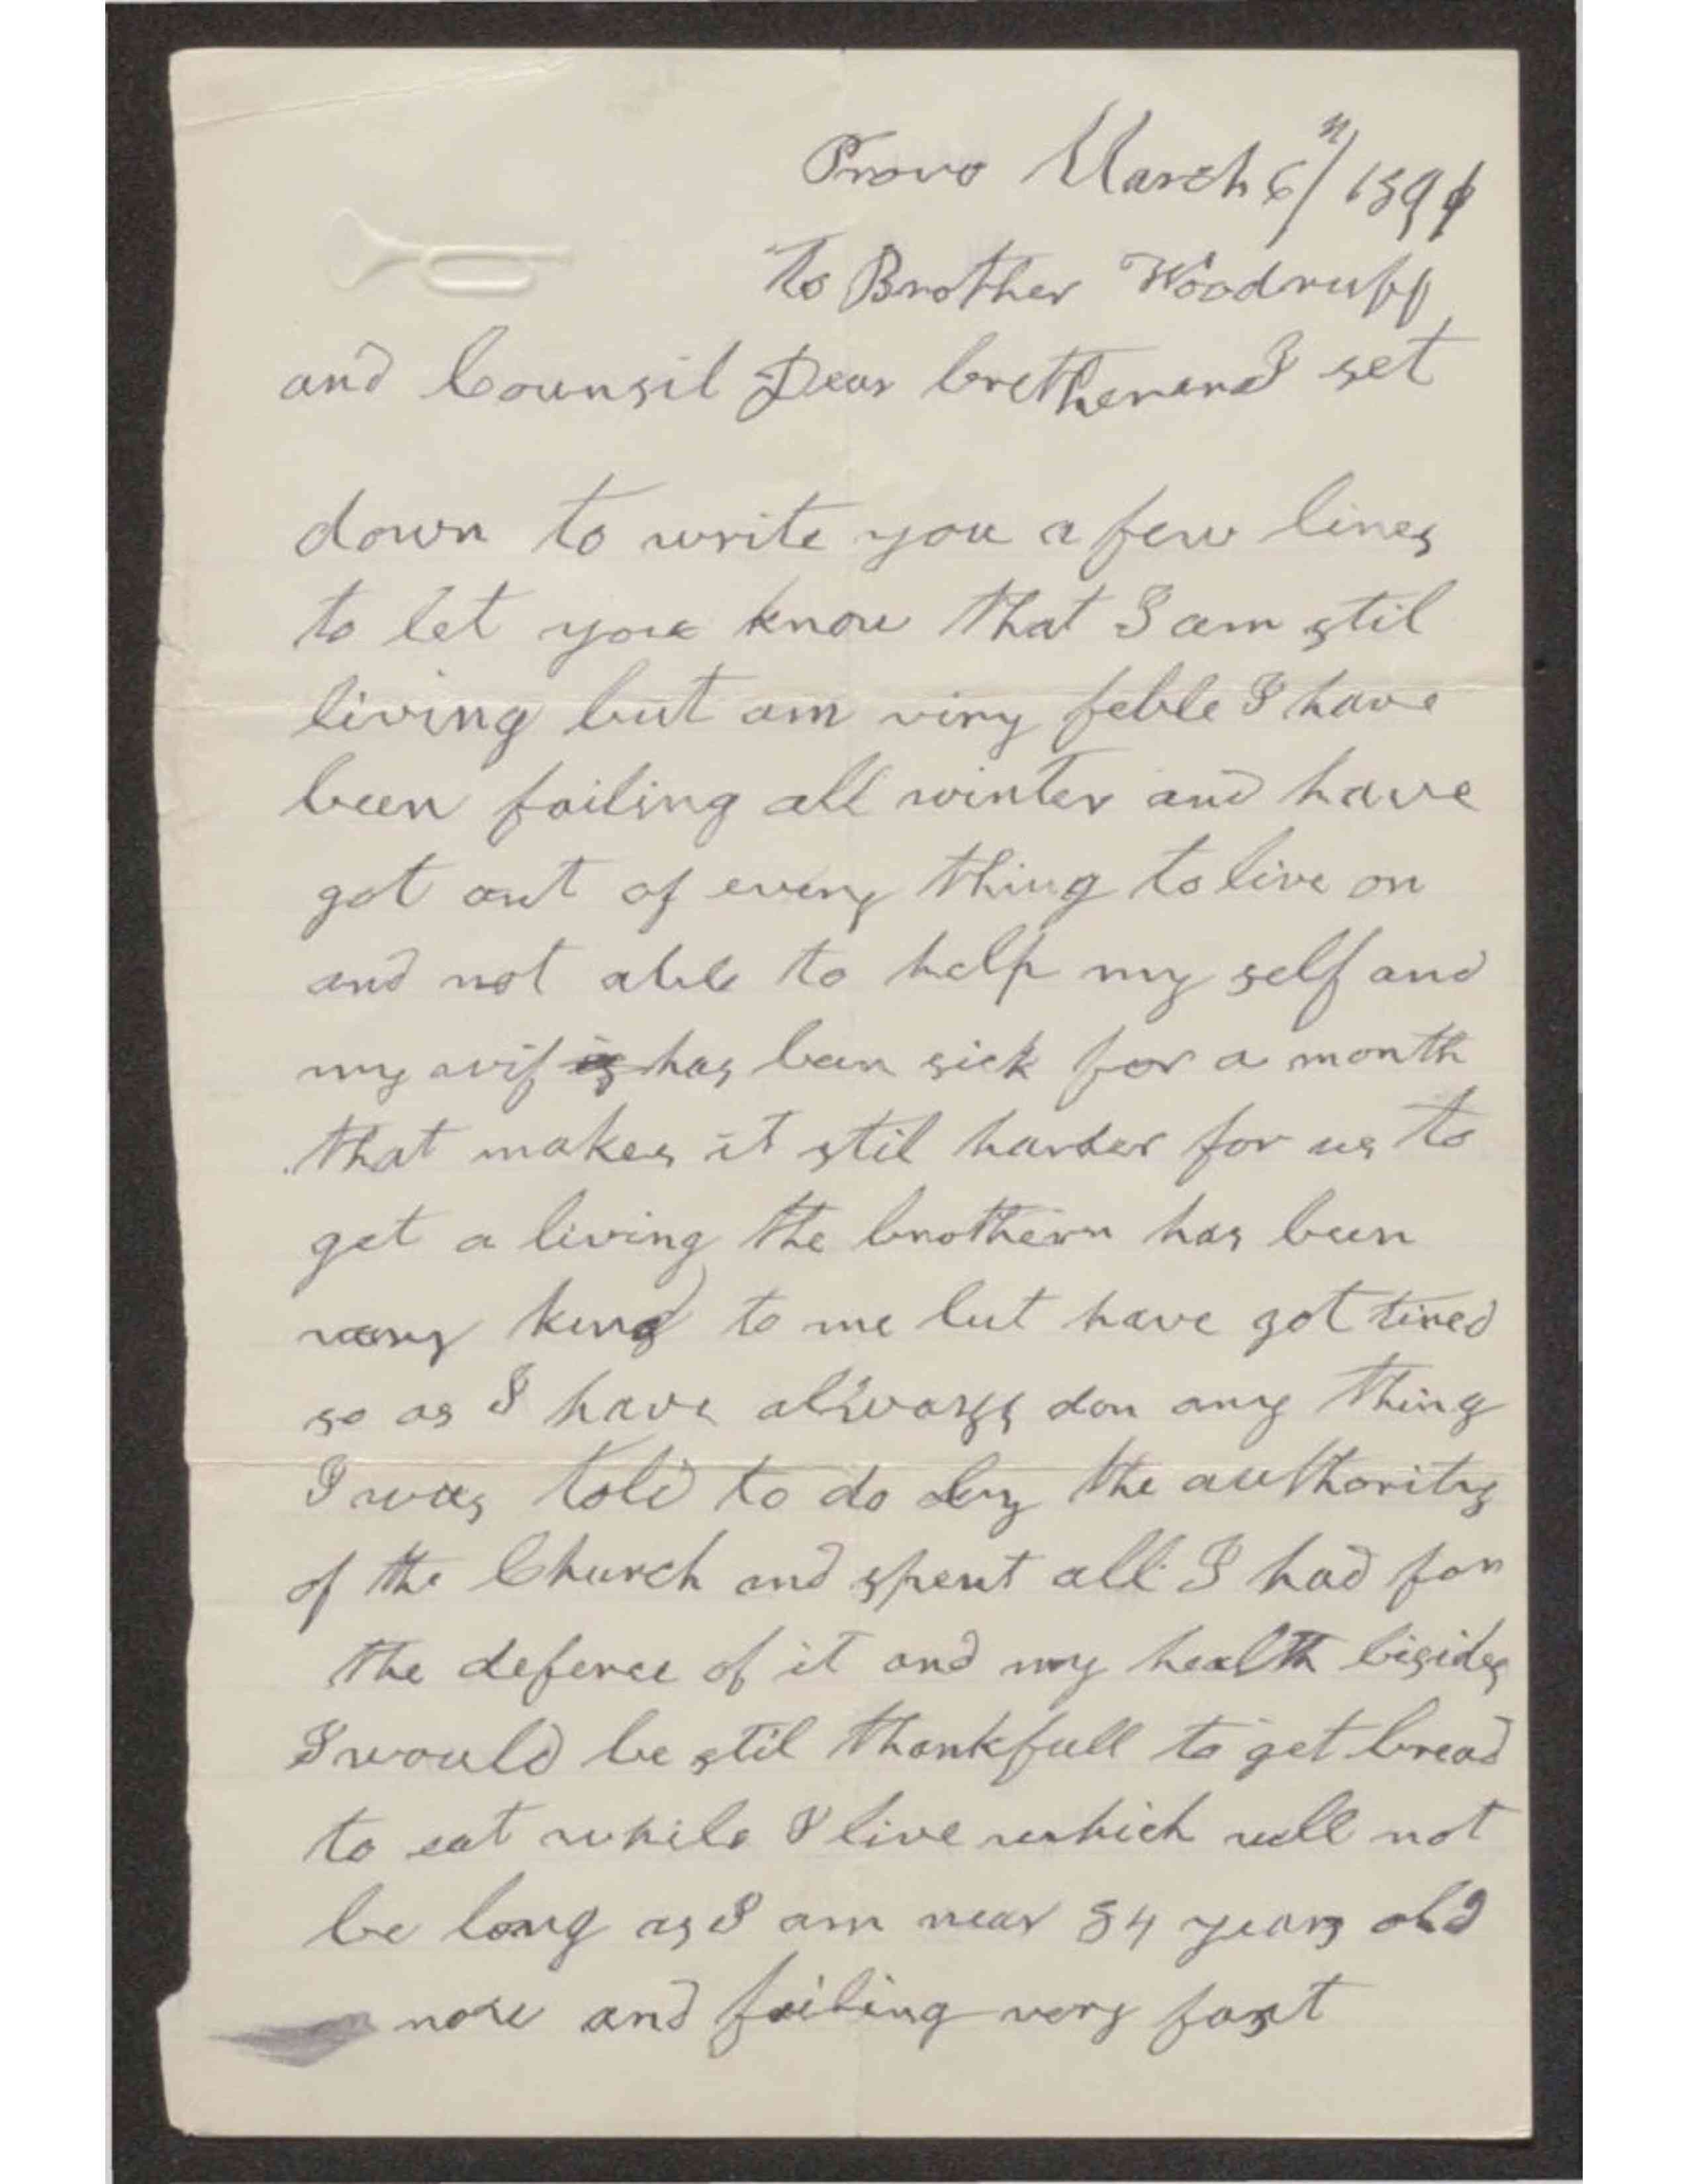 Provo March 6th/1894
To Brother Woodruff
and Counsil Dear bretheren and I set
down to write you a few lines
to let you know that I am stil
living but am viry feble I have
been failing all winter and have
got out of every thing to live on
and not able to help my self and
my wif is has ben sick for a month
that makes it stil harder for us to
get a living the brothern has been
very kind to me but have got tired
so as I have always don any thing
I was told to do by the authority
of the Church and spent all I had for
the defence of it and my health bisides
I would be stil thankfull to get bread
to eat while I live which will not
be long as I am near 84 years old
now and failing very fast